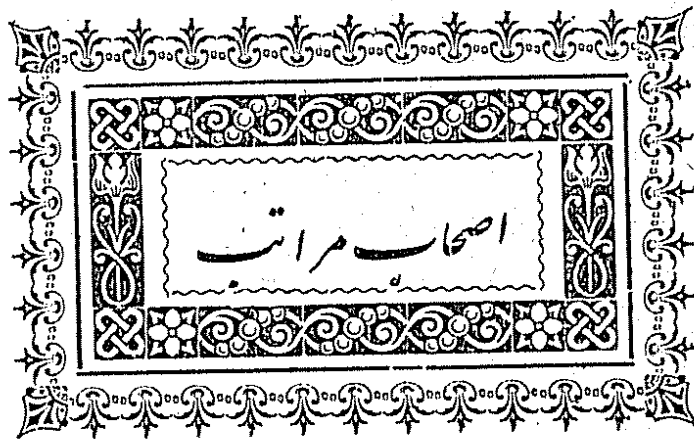 اصحاب مراتب